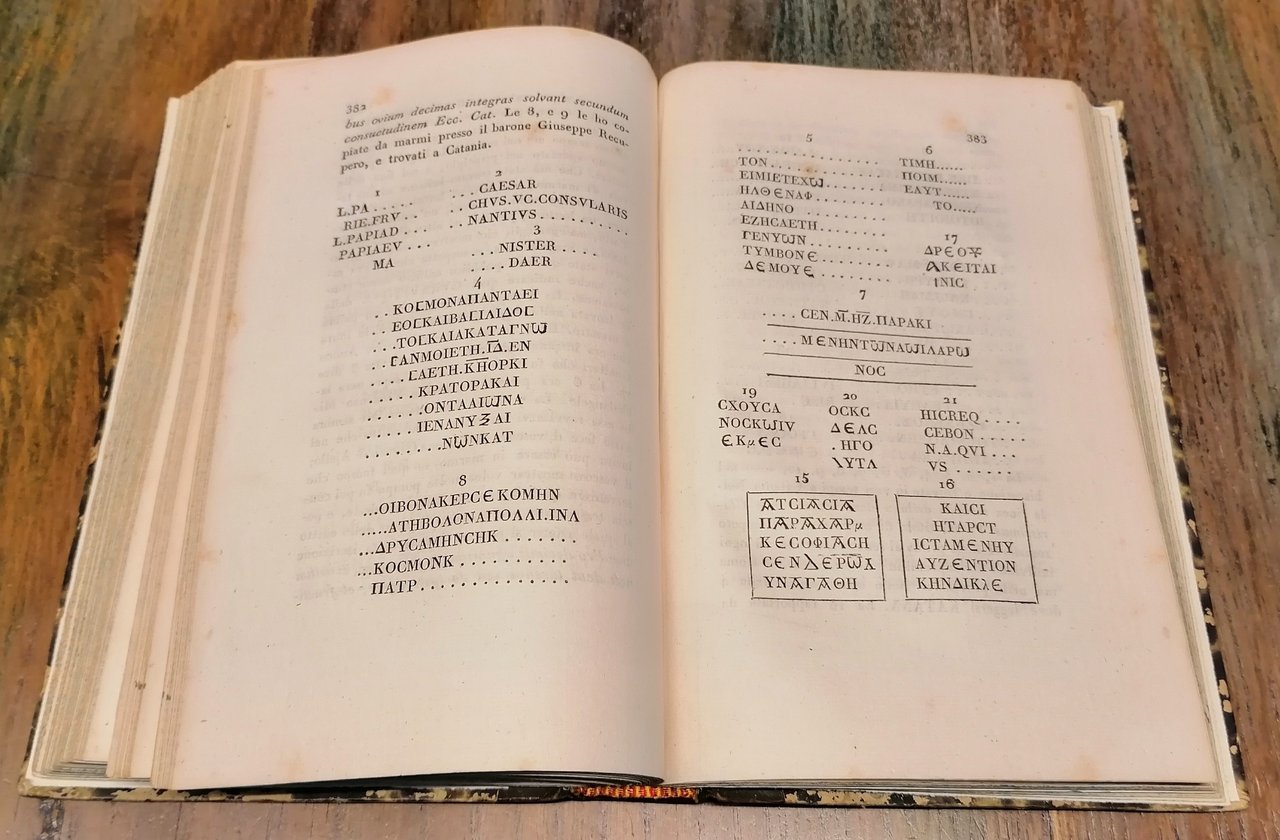 382
bus ovium decimas integras solvant secundum
consuetudinem Ecc. Cat. Le 8, e 9 le ho co-
piate da marmi presso il barone Giuseppe Recu-
pero, e trovati a Catania.
1
L.PA.....
RIE.FRV..
L.PAPIAD...
PAPIAEV...
MA
2
....CAESAR
..CHVS.VC.CONSVLARIS
NANTIVS.........
3
...NISTER....
....DAER
4
..ΚΟϹΜΟΝΑΠΑΝΤΑΕΙ
..ΕΟϹΚΑΙΒΑϹΙΛΙΔΟϹ
...ΤΟϹΚΑΙΑΚΑΤΑΓΝΩ
...ϹΑΝΜΟΙΕΤΗ.Ι̅Δ̅.ΕΝ
....ϹΑΕΤΗ.Κ̅Η̅ΟΡΚΙ
.....ΚΡΑΤΟΡΑΚΑΙ
......ΟΝΤΑΛΙΩΝΑ
.....ΙΕΝΑΝΥΞΑΙ
........ΝΩΝΚΑΤ
8
...ΟΙΒΟΝΑΚΕΡϹΕΚΟΜΗΝ
.....ΑΤΗΒΟΛΟΝΑΠΟΛΛΙ.ΙΝΛ
...ΔΡΥϹΑΜΗΝϹΗΚ.......
...ΚΟϹΜΟΝΚ..........
ΠΑΤΡ..............
383
5
................
ΤΟΝ..............
ΕΙΜΙΕΤΕΧΩ.......
ΗΛΘΕΝΑΦ.........
ΑΙΔΗΝΟ.........
ΕΖΗϹΑΕΤΗ........
ΓΕΝΥΩΝ.........
ΤΥΜΒΟΝΕ.........
ΔΕΜΟΥΕ.........
6
ΤΙΜΗ......
ΠΟΙΜ......
ΕΑΥΤ......
ΤΟ.....
17
ΔΡΕΟΥ
ΑΚΕΙΤΑΙ
ΙΝΙϹ
7
....ϹΕΝ.Μ̅.Η̅Ζ̅.ΠΑΡΑΚΙ
....ΜΕΝΗΝΤΩΝΑΩΙΛΑΡΩ
ΝΟϹ
19
ϹΧΟΥϹΑ
ΝΟϹΚΩΙV
ΕΚμΕϹ
20
ΟϹΚϹ
ΔΕΛϹ
.ΗΓΟ
\ΥΤΛ
21
HICREQ....
CEBON.....
N.A.QVI...
VS.......
15
ΑΤϹΙΑϹΙΑ
ΠΑΡΑΧΑΡμ
ΚΕϹΟΦΙΑϹΗ
ϹΕΝΔΕΡΩΛ
ΥΝΑΓΑΘΗ
16
ΚΑΙϹΙ
ΗΤΑΡϹΤ
ΙϹΤΑΜΕΝΗΥ
ΑΥΖΕΝΤΙΟΝ
ΚΗΝΔΙΚλΕ